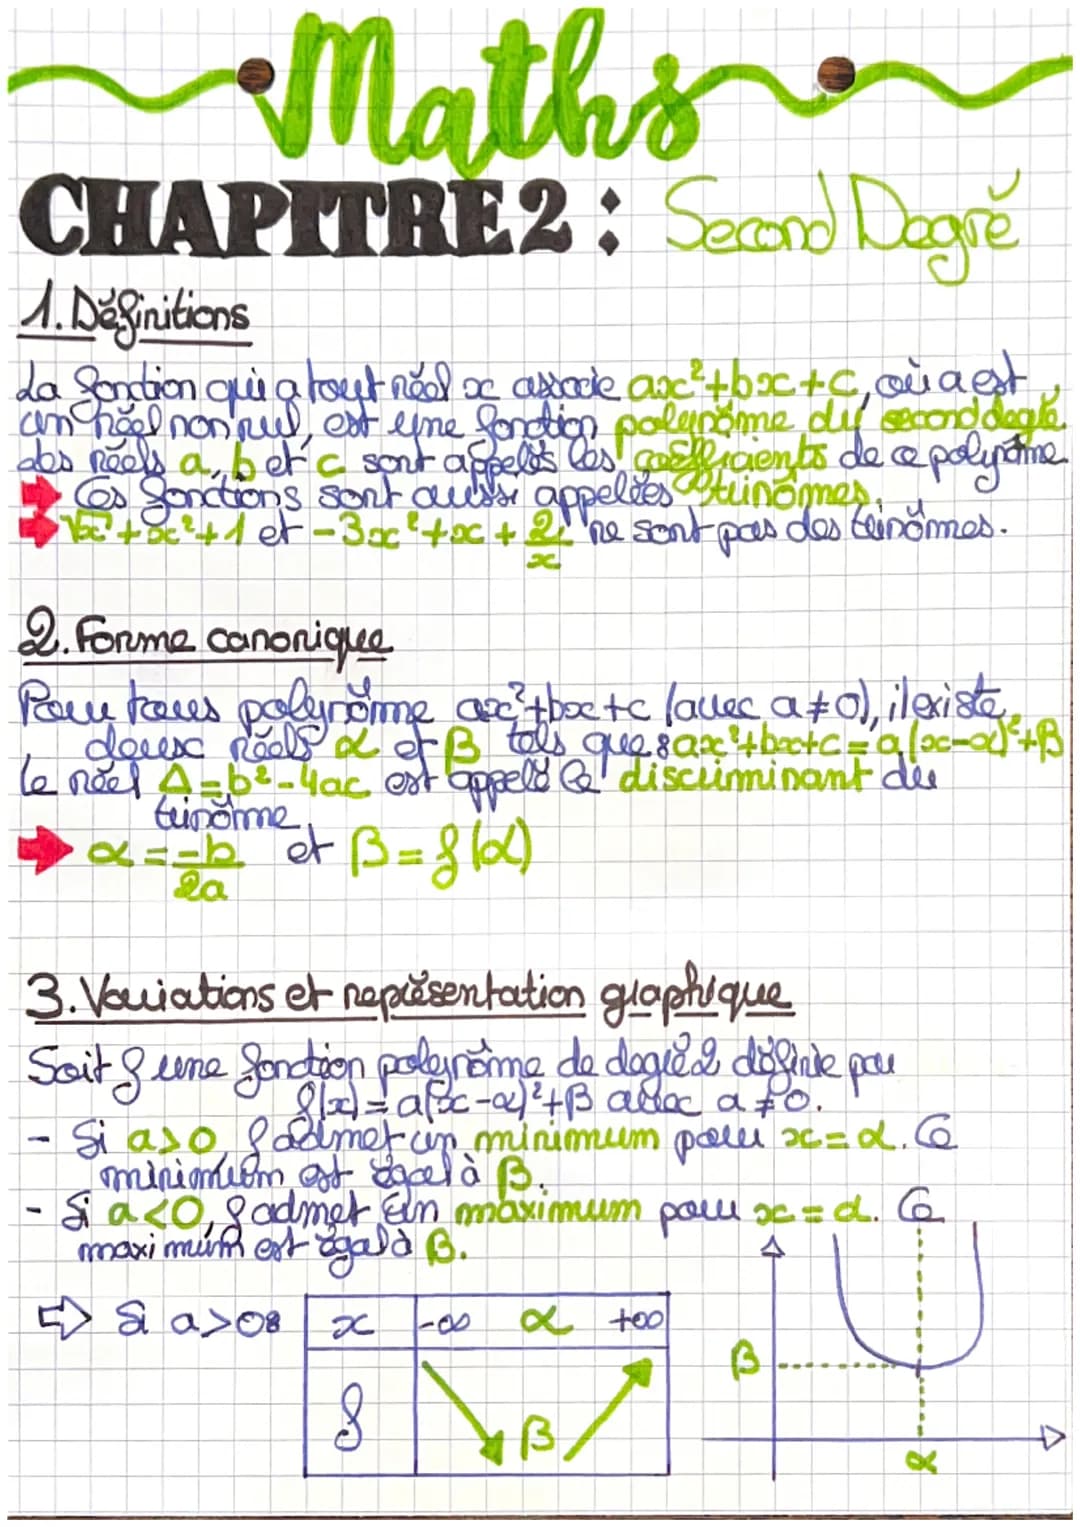 Maths
CHAPITRE 2 : Second Degré
1. Définitions
La fonction qui a tout réel x associe ax²+bx+c, où a est
un réel non nul, est une fonction polynôme du second degré.
des réels a, b et c sont appelés les coefficients de ce polynôme
➡ Ces fonctions sont aussi appelées trinômes.
➡ √x+x²+1 et -3x²+x+2/x ne sont pas des trinômes.
2. Forme canonique
Pour tous polynôme ax²+bx+c (avec a≠0), il existe
deux réels α et β tels que : ax²+bx+c = a(x-α)²+β
Le réel Δ=b²-4ac est appelé le discriminant du
trinôme
➡ α = -b/2a et β = f(α)
3. Variations et représentation graphique
Soit f une fonction polynôme de degré 2 définie par
f(x) = a(x-α)²+β avec a≠0.
- Si a>0, f admet un minimum pour x=α. Ce
minimum est égal à β.
- Si a<0, f admet un maximum pour x=α. Ce
maximum est égal à β.
⇨ Si a>0 :
x -∞ α +∞
f β
β
α